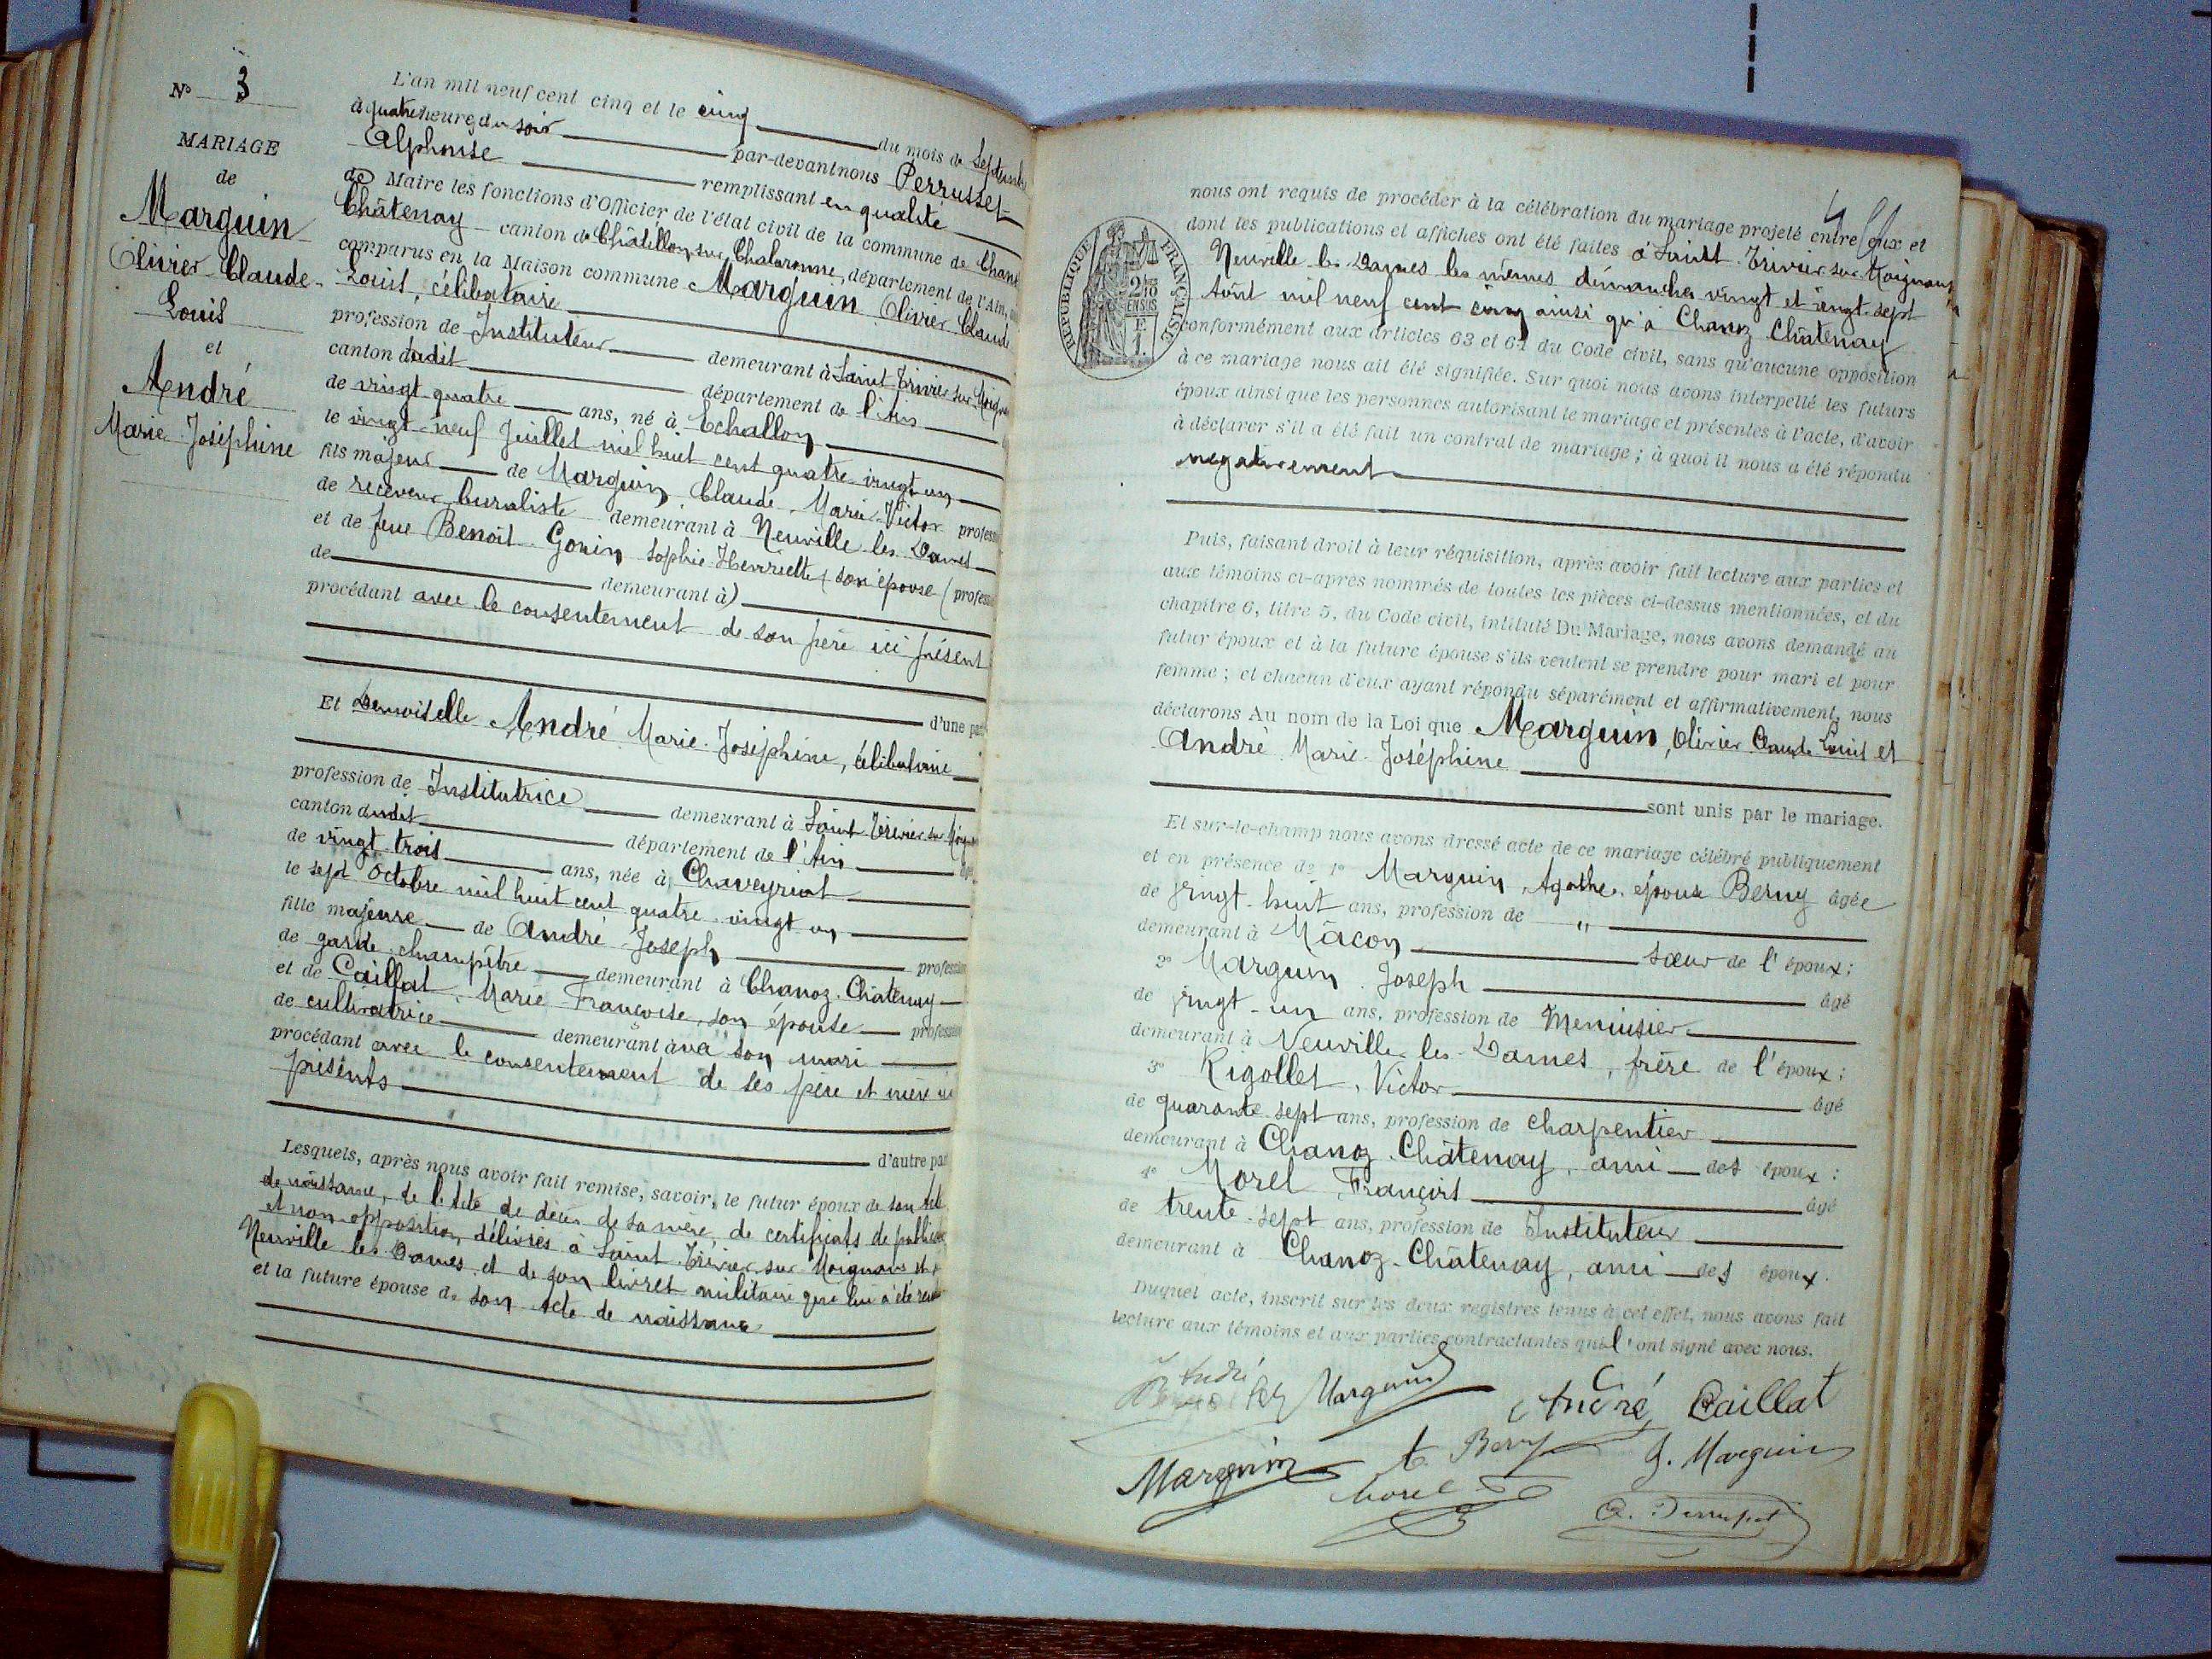 N° 3
MARIAGE
de
Marguin
Olivier Claude
Louis
et
André
Marie Joséphine
L'an mil neuf cent cinq et le cinq du mois de Septembre
à quatre heures du soir par-devant nous Perrusset
Alphonse remplissant en qualité
de Maire les fonctions d'Officier de l'état civil de la commune de Chanoz
Châtenay canton de Châtillon sur Chalaronne, département de l'Ain,
comparus en la Maison commune Marguin Olivier Claude
Louis, célibataire
profession de Instituteur demeurant à Saint Trivier sur Moignans
canton dudit département de l'Ain
de vingt quatre ans, né à Echallon
le vingt-neuf Juillet mil huit cent quatre vingt un
fils majeur de Marguin Claude Marie Victor profession
de receveur buraliste demeurant à Neuville les Dames
et de feue Benoit Gonin Sophie Henriette son épouse (profession
de demeurant à)
procédant avec le consentement de son père ici présent
d'une part
Et Demoiselle André Marie Joséphine, célibataire
profession de Institutrice demeurant à Saint Trivier sur Moignans
canton dudit département de l'Ain
de vingt trois ans, née à Chaveyriat
le sept Octobre mil huit cent quatre vingt un
fille majeure de André Joseph profession
de garde champêtre demeurant à Chanoz Châtenay
et de Caillat, Marie Françoise, son épouse profession
de cultivatrice demeurant à va son mari
procédant avec le consentement de ses père et mère ici
présents
d'autre part
Lesquels, après nous avoir fait remise, savoir, le futur époux de son acte
de naissance, de l'acte de décès de sa mère, de certificats de publication
et non opposition délivrés à Saint Trivier sur Moignans et
Neuville les Dames et de son livret militaire qui lui a été rendu
et la future épouse de son acte de naissance
nous ont requis de procéder à la célébration du mariage projeté entre eux et
dont les publications et affiches ont été faites à Saint Trivier sur Moignans
Neuville les Dames les mêmes dimanches vingt et vingt-sept
Août mil neuf cent cinq ainsi qu'à Chanoz Châtenay
RÉPUBLIQUE FRANÇAISE
conformément aux articles 63 et 64 du Code civil, sans qu'aucune opposition
à ce mariage nous ait été signifiée. Sur quoi nous avons interpellé les futurs
époux ainsi que les personnes autorisant le mariage et présentes à l'acte, d'avoir
à déclarer s'il a été fait un contrat de mariage ; à quoi il nous a été répondu
négativement
Puis, faisant droit à leur réquisition, après avoir fait lecture aux parties et
aux témoins ci-après nommés de toutes les pièces ci-dessus mentionnées, et du
chapitre 6, titre 5, du Code civil, intitulé Du Mariage, nous avons demandé au
futur époux et à la future épouse s'ils veulent se prendre pour mari et pour
femme ; et chacun d'eux ayant répondu séparément et affirmativement, nous
déclarons Au nom de la Loi que Marguin, Olivier Claude Louis et
André Marie Joséphine
sont unis par le mariage.
Et sur-le-champ nous avons dressé acte de ce mariage célébré publiquement
et en présence de 1° Marguin Agathe, épouse Berny âgée
de vingt-huit ans, profession de "
demeurant à Mâcon sœur de l'époux ;
2° Marguin Joseph âgé
de vingt-un ans, profession de Menuisier
demeurant à Neuville-les-Dames, frère de l'époux ;
3° Rigollet, Victor âgé
de quarante sept ans, profession de charpentier
demeurant à Chanoz Châtenay, ami des époux ;
4° Morel François âgé
de trente-sept ans, profession de Instituteur
demeurant à Chanoz-Châtenay, ami des époux.
Duquel acte, inscrit sur les deux registres tenus à cet effet, nous avons fait
lecture aux témoins et aux parties contractantes qui l'ont signé avec nous.
André
Marguin André Caillat
Marguin A. Berny J. Marguin
Morel
A. Perrusset